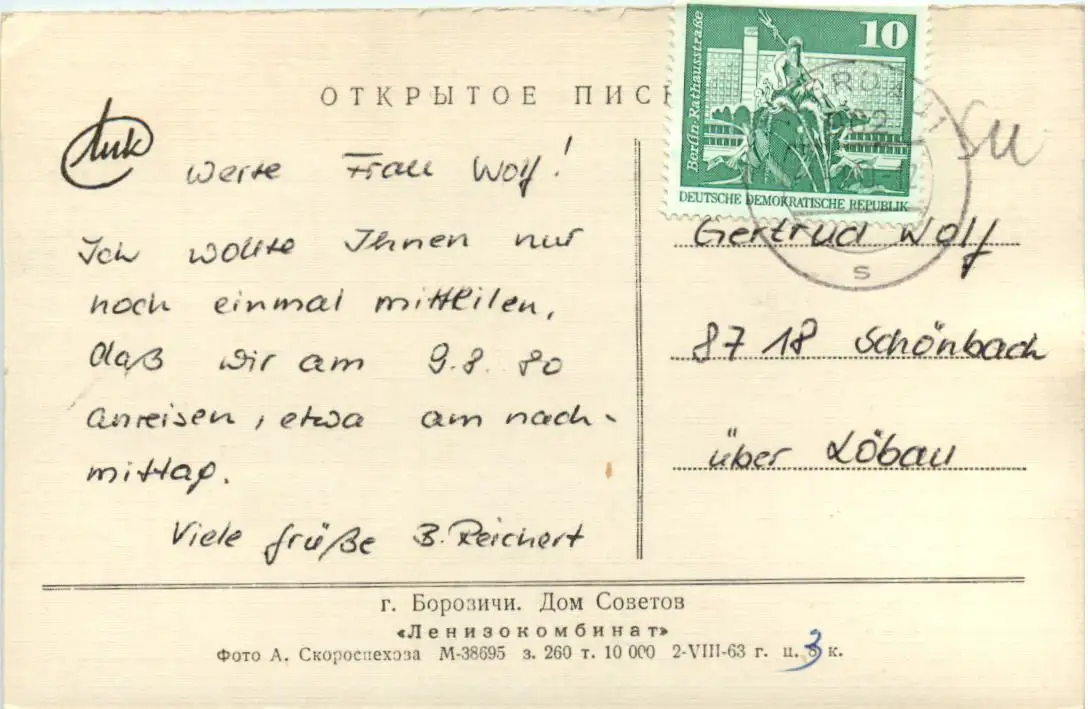 ОТКРЫТОЕ ПИСЬ
Berlin-Rathausstraße
10
DEUTSCHE DEMOKRATISCHE REPUBLIK
su
Werte Frau Wolf!
Ich wollte Ihnen nur
noch einmal mitteilen,
daß wir am 9.8.80
anreisen, etwa am nach-
mittag.
Viele Grüße B. Reichert
Gertrud Wolf
s
8718 Schönbach
über Löbau
г. Борозичи. Дом Советов
«Ленизокомбинат»
Фото А. Скороспехова М-38695 з. 260 т. 10 000 2-VIII-63 г. ц. 3 к.